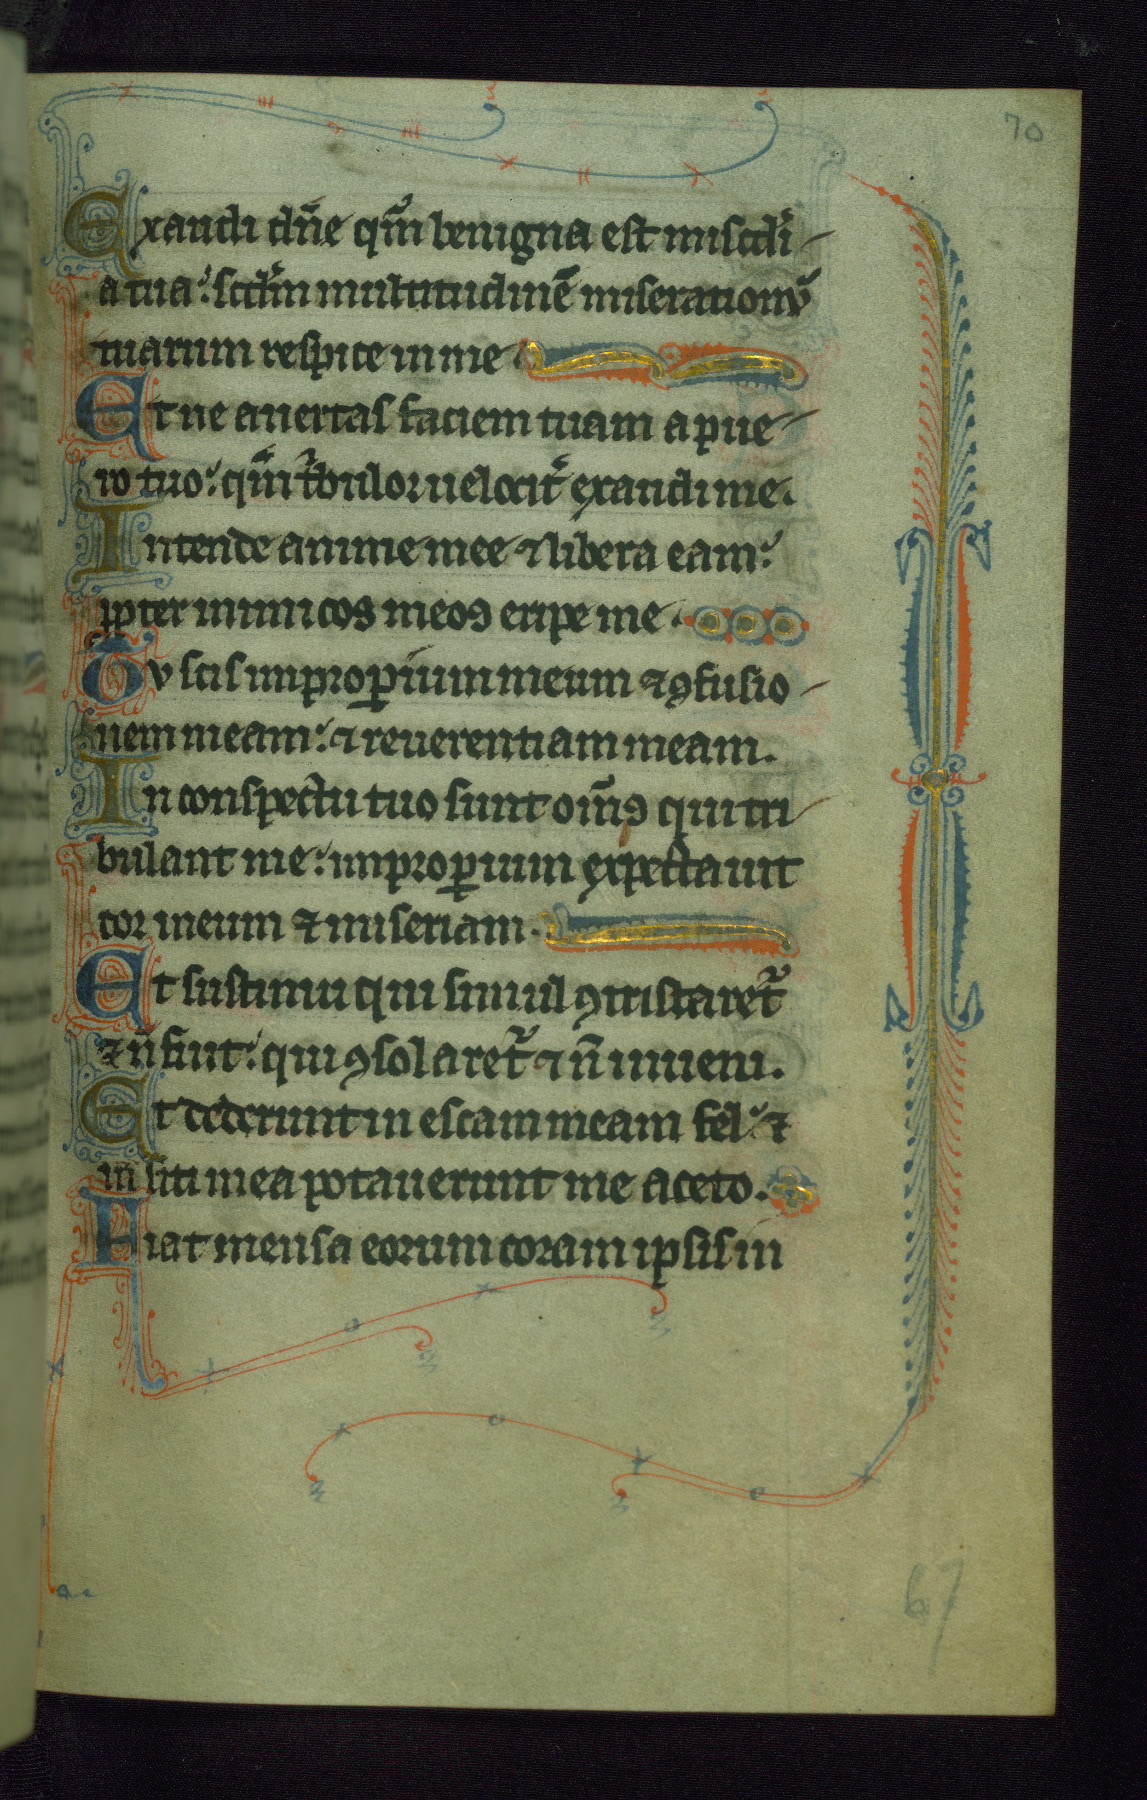 70
Exaudi dñe qm̃ benigna est misc̄di
a tua: scdm̃ multitudinē miserationū
tuarum respice in me
Et ne auertas faciem tuam a pue
ro tuo: qm̃ t̄bulor uelocit̄ exaudi me.
Intende anime mee ⁊ libera eam:
ꝓpter inimicos meos eripe me.
Tu scis improꝑium meum ⁊ ꝯfusio
nem meam: ⁊ reuerentiam meam.
In conspectu tuo sunt om̄ꝯ qui tri
bulant me: improꝑium expectauit
cor meum ⁊ miseriam.
Et sustinui qui simul ꝯtristaret᷑
⁊ ñ fuit: qui ꝯsolaret᷑ ⁊ ñ inueni.
Et dederunt in escam meam fel: ⁊
in siti mea potauerunt me aceto.
Fiat mensa eorum coram ipsis in
67